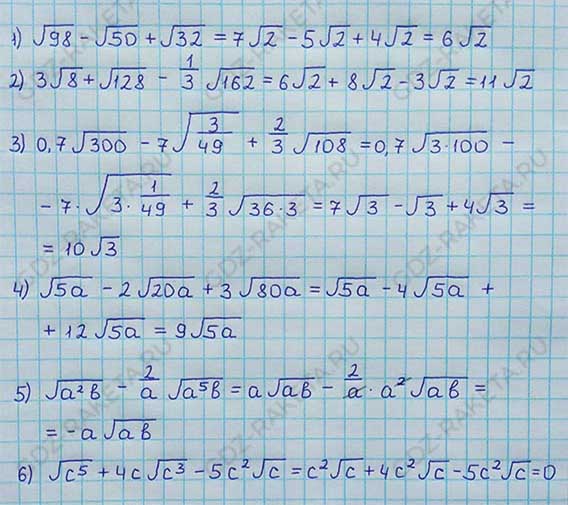 1) √98 - √50 + √32 = 7√2 - 5√2 + 4√2 = 6√2
2) 3√8 + √128 - 1/3 √162 = 6√2 + 8√2 - 3√2 = 11√2
3) 0,7√300 - 7√(3/49) + 2/3 √108 = 0,7√(3·100) -
- 7·√(3·1/49) + 2/3 √(36·3) = 7√3 - √3 + 4√3 =
= 10√3
4) √(5a) - 2√(20a) + 3√(80a) = √(5a) - 4√(5a) +
+ 12√(5a) = 9√(5a)
5) √(a²b) - 2/a √(a⁵b) = a√(ab) - 2/a · a²√(ab) =
= -a√(ab)
6) √(c⁵) + 4c√(c³) - 5c²√c = c²√c + 4c²√c - 5c²√c = 0
GDZ-RAKETA.RU